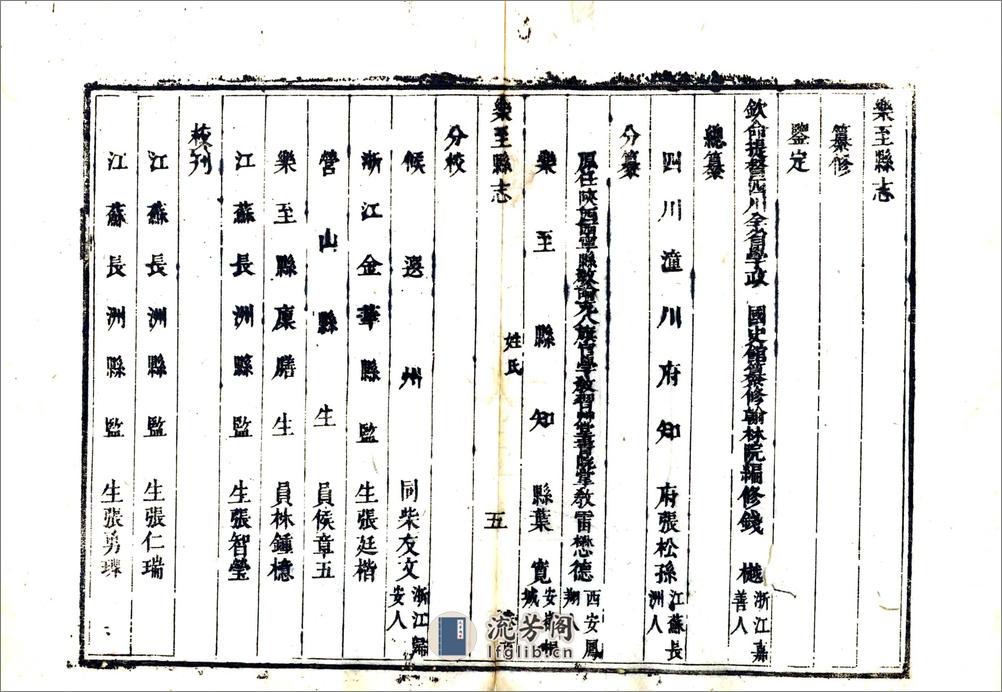 樂至縣志
纂修
鑒定
欽命提督四川全省學政 國史館纂修翰林院編修錢樾浙江嘉善人
總纂
四川潼川府知府張松孫江蘇長洲人
分纂
原任陝西西寧縣教諭八旗官學教習堂書院掌教雷懋德西安鳳翔人
樂至縣知縣葉寬安徽桐城
樂至縣志 姓氏 五
分校
候選州同柴友文浙江歸安人
浙江金華縣監生張廷楷
營山縣生員侯章五
樂至縣廩膳生員林鍾檍
江蘇長洲縣監生張智瑩
校刊
江蘇長洲縣監生張仁瑞
江蘇長洲縣監生張勇
流芳阁
lfglib.cn